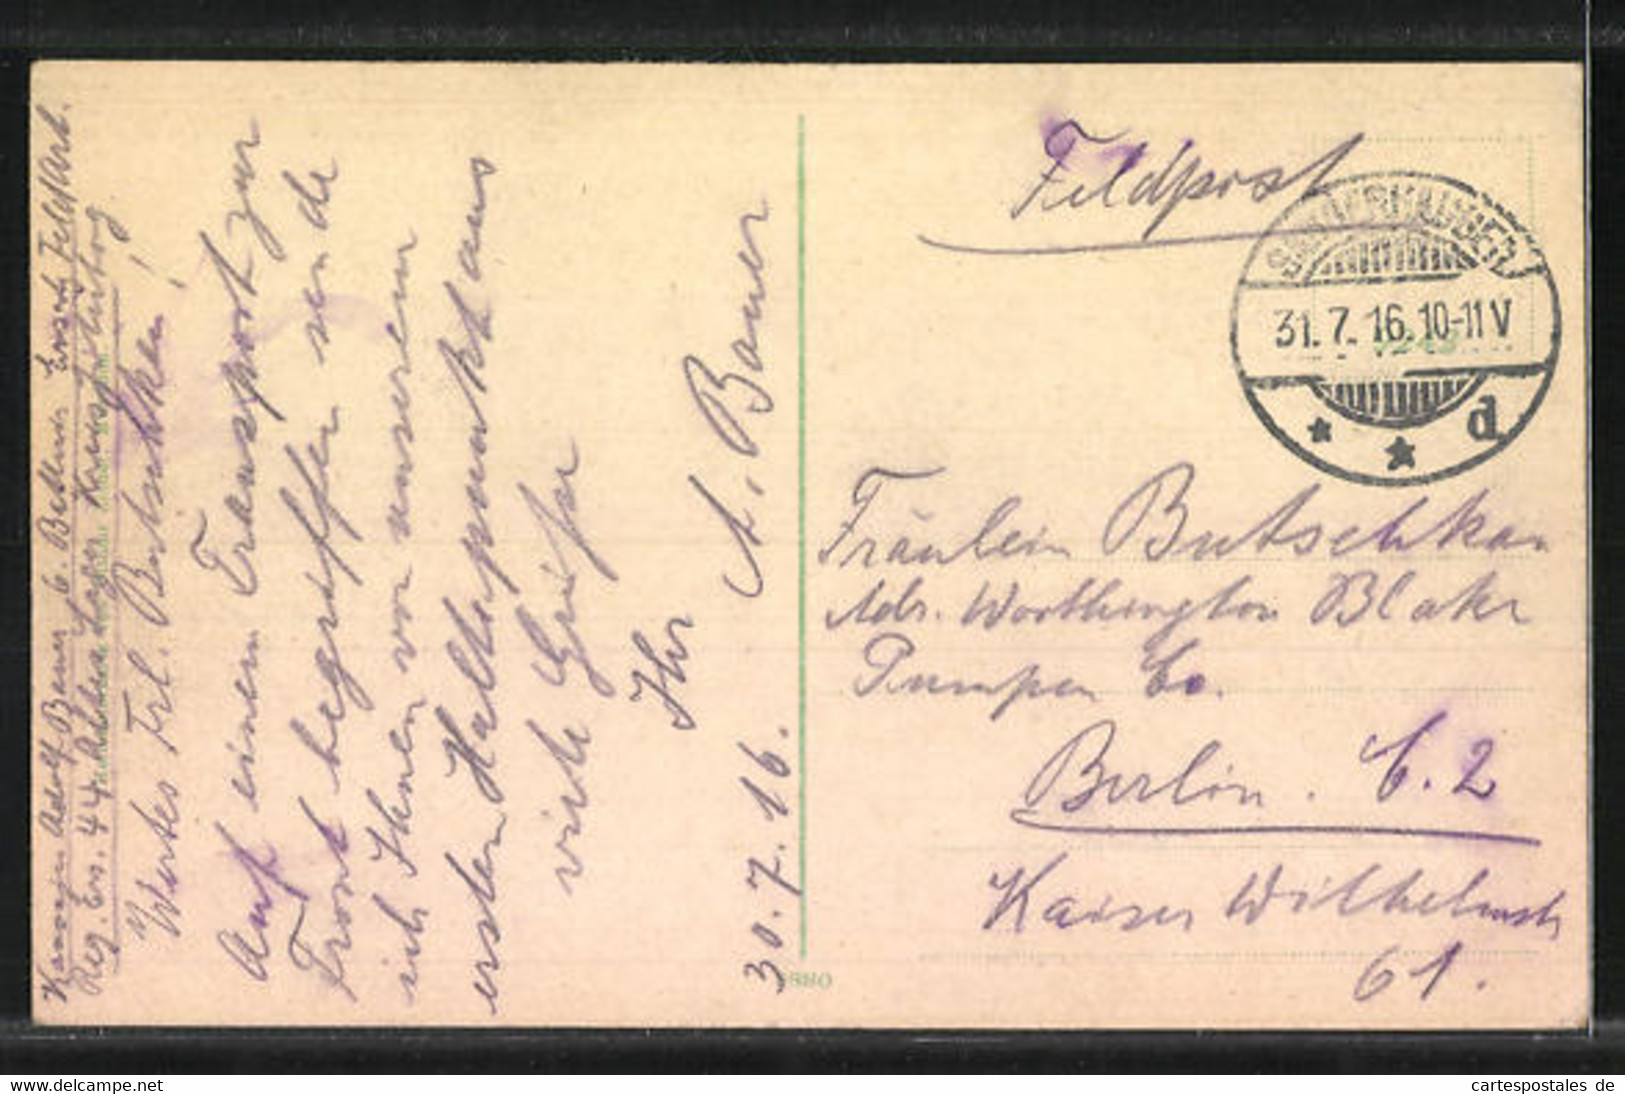 Kanonier Adolf Bauer 6. Batterie Ersatz Feldart.
Reg. No. 44 Lager Kreis Jüterbog.
Wertes Frl. Butschkau!
Auf einem Transport zur
Front begriffen sende
ich Ihnen von unserem
ersten Haltepunkt aus
viele Grüße
Ihr A. Bauer
30.7.16.
8880
Feldpost
31.7.16.10-11V
d
Fräulein Butschkau
Adr. Worthington Blake
Pumpen Co.
Berlin. C. 2
Kaiser Wilhelmstr
61.
cartespostales de